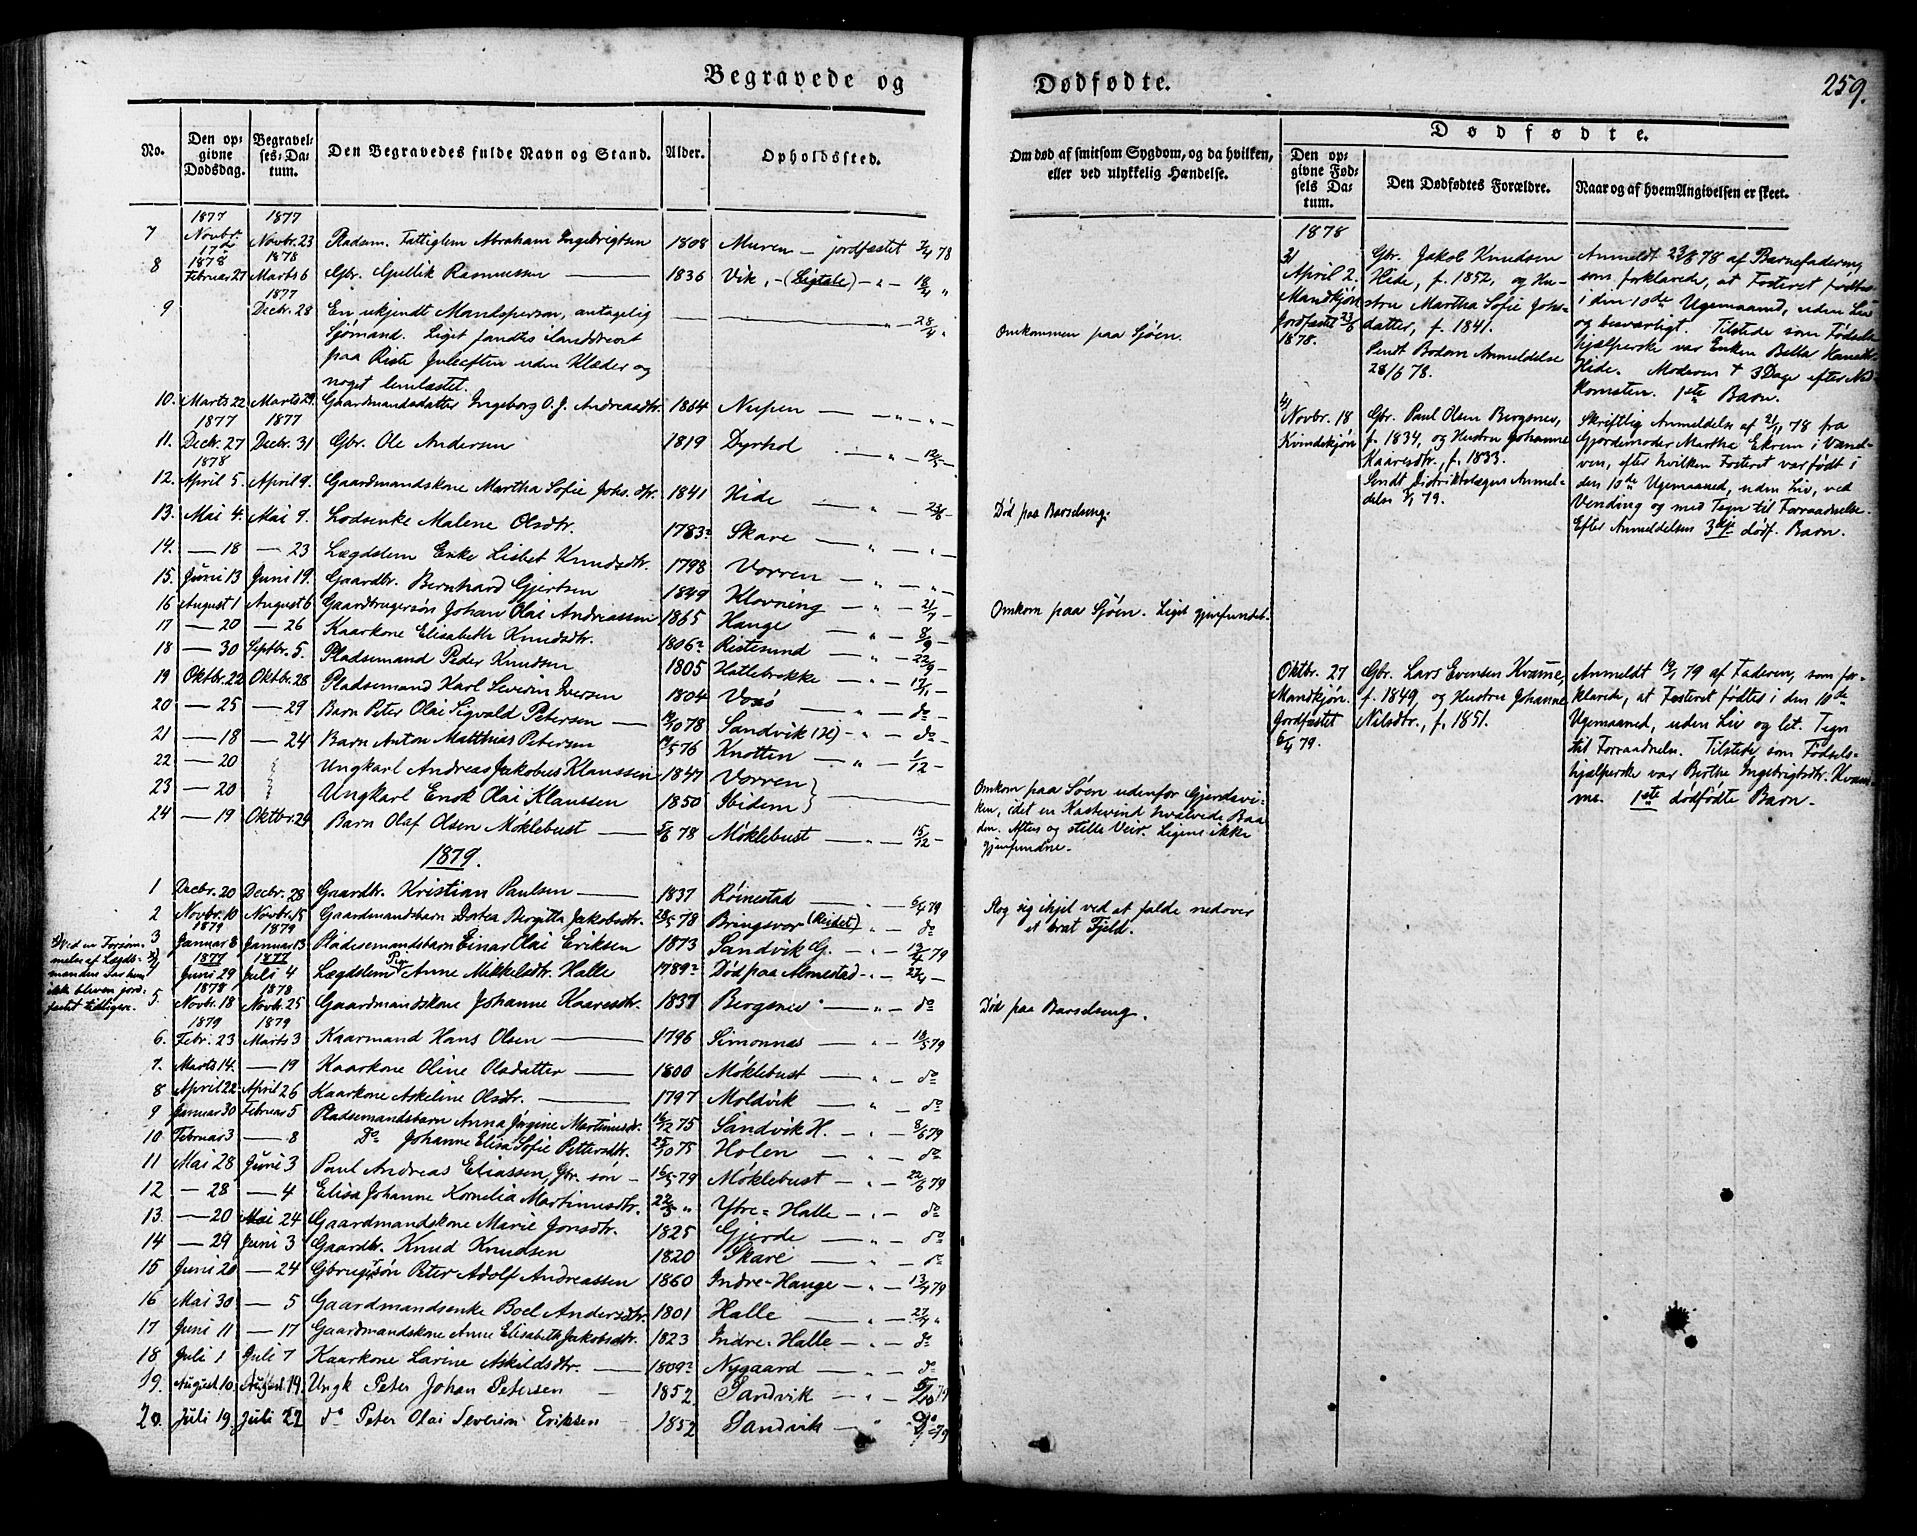 Begravede og
Dødfødte.
259.
No.
Den opgivne Dødsdag.
Begravelses-Datum.
Den Begravedes fulde Navn og Stand.
Alder.
Opholdssted.
Om død af smitsom Sygdom, og da hvilken, eller ved ulykkelig Hændelse.
Dødfødte.
Den opgivne Fødsels Datum.
Den Dødfødtes Forældre.
Naar og af hvem Angivelsen er skeet.
1877 1877
7 Novbr. 17de Novbr. 23 Pladsm. Fattiglem Abraham Ingebrigtsen 1808 Muren — jordfæstet 78
1878 1878
8 Februar 27 Marts 6 Gbr. Gullik Rasmussen 1836 Vik, - (Ligtale) - " - 18/4 "
1877
9 Decbr. 28 En ukjendt Mandsperson, antagelig " - 28/4 "
Sjømand. Liget fandtes ilanddrevet
paa Riste Juleaften uden Klæder og
noget lemlæstet.
Omkommen paa Sjøen.
10. Marts 22 Marts 29 Gaardmandsdatter Ingeborg O. J. Andreasdtr. 1864 Nupen — " — " -
1877 1877
11. Decbr. 27 Decbr. 31 Gbr. Ole Andersen 1819 Dyrhol " 12/5 -
1878
12. April 5. April 9. Gaardmandskone Martha Sofie Johs.dtr. 1841 Hide — " — 23/6 -
Død paa Barselseng.
13. Mai 4. Mai 9. Lodsenke Malene Olsdtr. 1783 Skare — " — " -
14. — 18 — 23 Lægdslem Enke Lisbet Knudsdtr. 1798 Vorren — " — " -
15. Juni 13 Juni 19. Gaardbr. Bernhard Gjertsen 1849 Klovning — " — 21/7 -
Omkom paa Sjøen. Liget gjenfundet.
16 August 1 August 6 Gaardbrugersøn Johan Olai Andreassen 1865 Hauge — " — 8/9 -
17 — 20 — 26 Kaarkone Elisabeth Knudsdtr. 1806 Ristesund — " — 22/9 -
18 — 30 Septbr. 5. Pladsemand Peder Knudsen 1805 Hatlebrekke — " —
19 Oktbr. 22 Oktbr. 28 Pladsemand Karl Severin Iversen 1804 Voxø — do
20 — 25 — 29 Barn Peter Olai Sigvald Petersen — 78 Sandvik (H) - " - do
21 — 18 — 24 Barn Anton Matthias Petersen 76 Knotten — " — 1/12 -
22 — 20 Ungkarl Andreas Jakobus Klaussen 1847 Vorren
23 — 20 Ungkarl Enok Olai Klaussen 1850 Ibidem
Omkom paa Søen udenfor Gjerdevi-
ken, idet en Kastevind hvælvede Baa-
den. Aften og stille Veir. Ligene ikke
gjenfundne.
24 — 19 Oktbr. 24 Barn Olaf Olsen Møklebust — 5/6 78 Møklebust — " — 15/12 -
1879.
1 Decbr. 20 Decbr. 28 Gaardbr. Kristian Paulsen — 1837 Røinestad — " - 79
2 Novbr. 10 Novbr. 15 Gaardmandsbarn Dortea Bergitta Jakobsdtr. 78 Bringsvor (Reidet) - " - do
Slog sig ihjel ved at falde nedover
et brat Fjeld.
1879 1879
3 Januar 8 Januar 13 Pladsemandsbarn Einar Olai Eriksen 1873 Sandvik G. - " - 79
1877 1877
4 Juni 29 Juli 4 Lægdslem Anne Mikkelsdtr. Halle 1789 Død paa Almestad - " -
Ved en Forsøm-
melse af Lægds-
manden Lar hun
ikke bleven jord-
fæstet tidligere.
1878 1878
5. Novbr. 18 Novbr. 25 Gaardmandskone Johanne Kaaresdtr. 1837 Bergsnes — " - do
Død paa Barselseng.
1879 1879
6. Febr. 23 Marts 3 Kaarmand Hans Olsen — 1796 Simonnæs — " - 79
7. Marts 14. — 19 Kaarkone Oline Olsdatter — 1800 Møklebust — " - do
8 April 22 April 26 Kaarkone Askeline Olsdtr. — 1797 Moldvik — " - do
9 Januar 30 Februar 5 Pladsemandsbarn Anna Jørgine Martinusdtr. 75 Sandvik H. - " - 8/6 79
10 Februar 3 — 8 Do Johanne Elisa Sofie Pettersdtr. 25/10 75 Holen — " - do
11 Mai 28 Juni 3 Paul Andreas Eliassen, Gbr. søn - 79 Møklebust - " - 22/6 79
12 - 28 — 4 Elisa Johanne Kornelia Martinusdtr. " Ytre-Halle - " - do
13. — 20 Mai 24 Gaardmandskone Marie Jonsdtr. 1825 Gjerde — " - do
14 — 29 Juni 3 Gaardbr. Knud Knudsen 1820 Skare — " - do
15 Juni 20 — 24 Gbrugersøn Peter Adolf Andreassen 1860 Indre-Hauge - " - 13/7 79
16 Mai 30 — 5 Gaardmandsenke Boel Andersdtr. 1801 Halle — " - 27/7 "
17 Juni 11 — 17 Gaardmandskone Anne Elisabeth Jakobsdtr. 1823 Indre-Halle - " - do
18 Juli 1 Juli 7 Kaarkone Larine Askildsdtr. — 1809 Nygaard — " do
19. August 10 August 14 Ungk Peter Johan Petersen — 1852 Sandvik — " - 79
20. Juli 19 Juli 22 do Peter Olai Severin Eriksen 1852 Sandvik — " 79
1878
3)
April 2.
Mandkjøn
Jordfæstet 23/6
1878.
Gbr. Jakob Knudsen
Hide, f. 1852, og Hu-
stru Martha Sofie Johs-
datter, f. 1841.
Sendt Bodom Anmeldelse
28/6 78.
Anmeldt 23/6 78 af Barnefaderen,
som forklarede, at Fosteret fødtes
i den 10de Ugemaaned, uden Liv
og besværligt. Tilstede som Fødsels-
hjælperske var Enken Bella Hansdtr.
Hide. Moderen † 3 Dage efter Ned-
komsten. 1ste Barn.
4)
Novbr. 18
Kvindekjøn
Gbr. Paul Olsen Bergsnes,
f. 1834, og Hustru Johanne
Kaaresdtr., f. 1833.
Sendt Distriktslægen Anmel-
delse 79.
Skriftlig Anmeldelse af 78 fra
Gjordemoder Martha Ekrem i Vanel-
ven, efter hvilken Fosteret var født i
den 10de Ugemaaned, uden Liv, ved
Vending og med Tegn til Forraadnelse.
Efter Anmeldelsen 3die dødf. Barn.
Oktbr. 27
Mandkjøn.
Jordfæstet
79.
Gbr. Lars Evensen Kvame,
f. 1849 og Hustru Johanne
Nilsdtr., f. 1851.
Anmeldt 79 af Faderen, som for-
klarede, at Fosteret fødtes i den 10de
Ugemaaned, uden Liv og let. Tegn
til Forraadnelse. Tilstede som Fødsels-
hjælperske var Berthe Ingebrigtsdtr. Kvam-
me. 1ste dødfødte Barn.